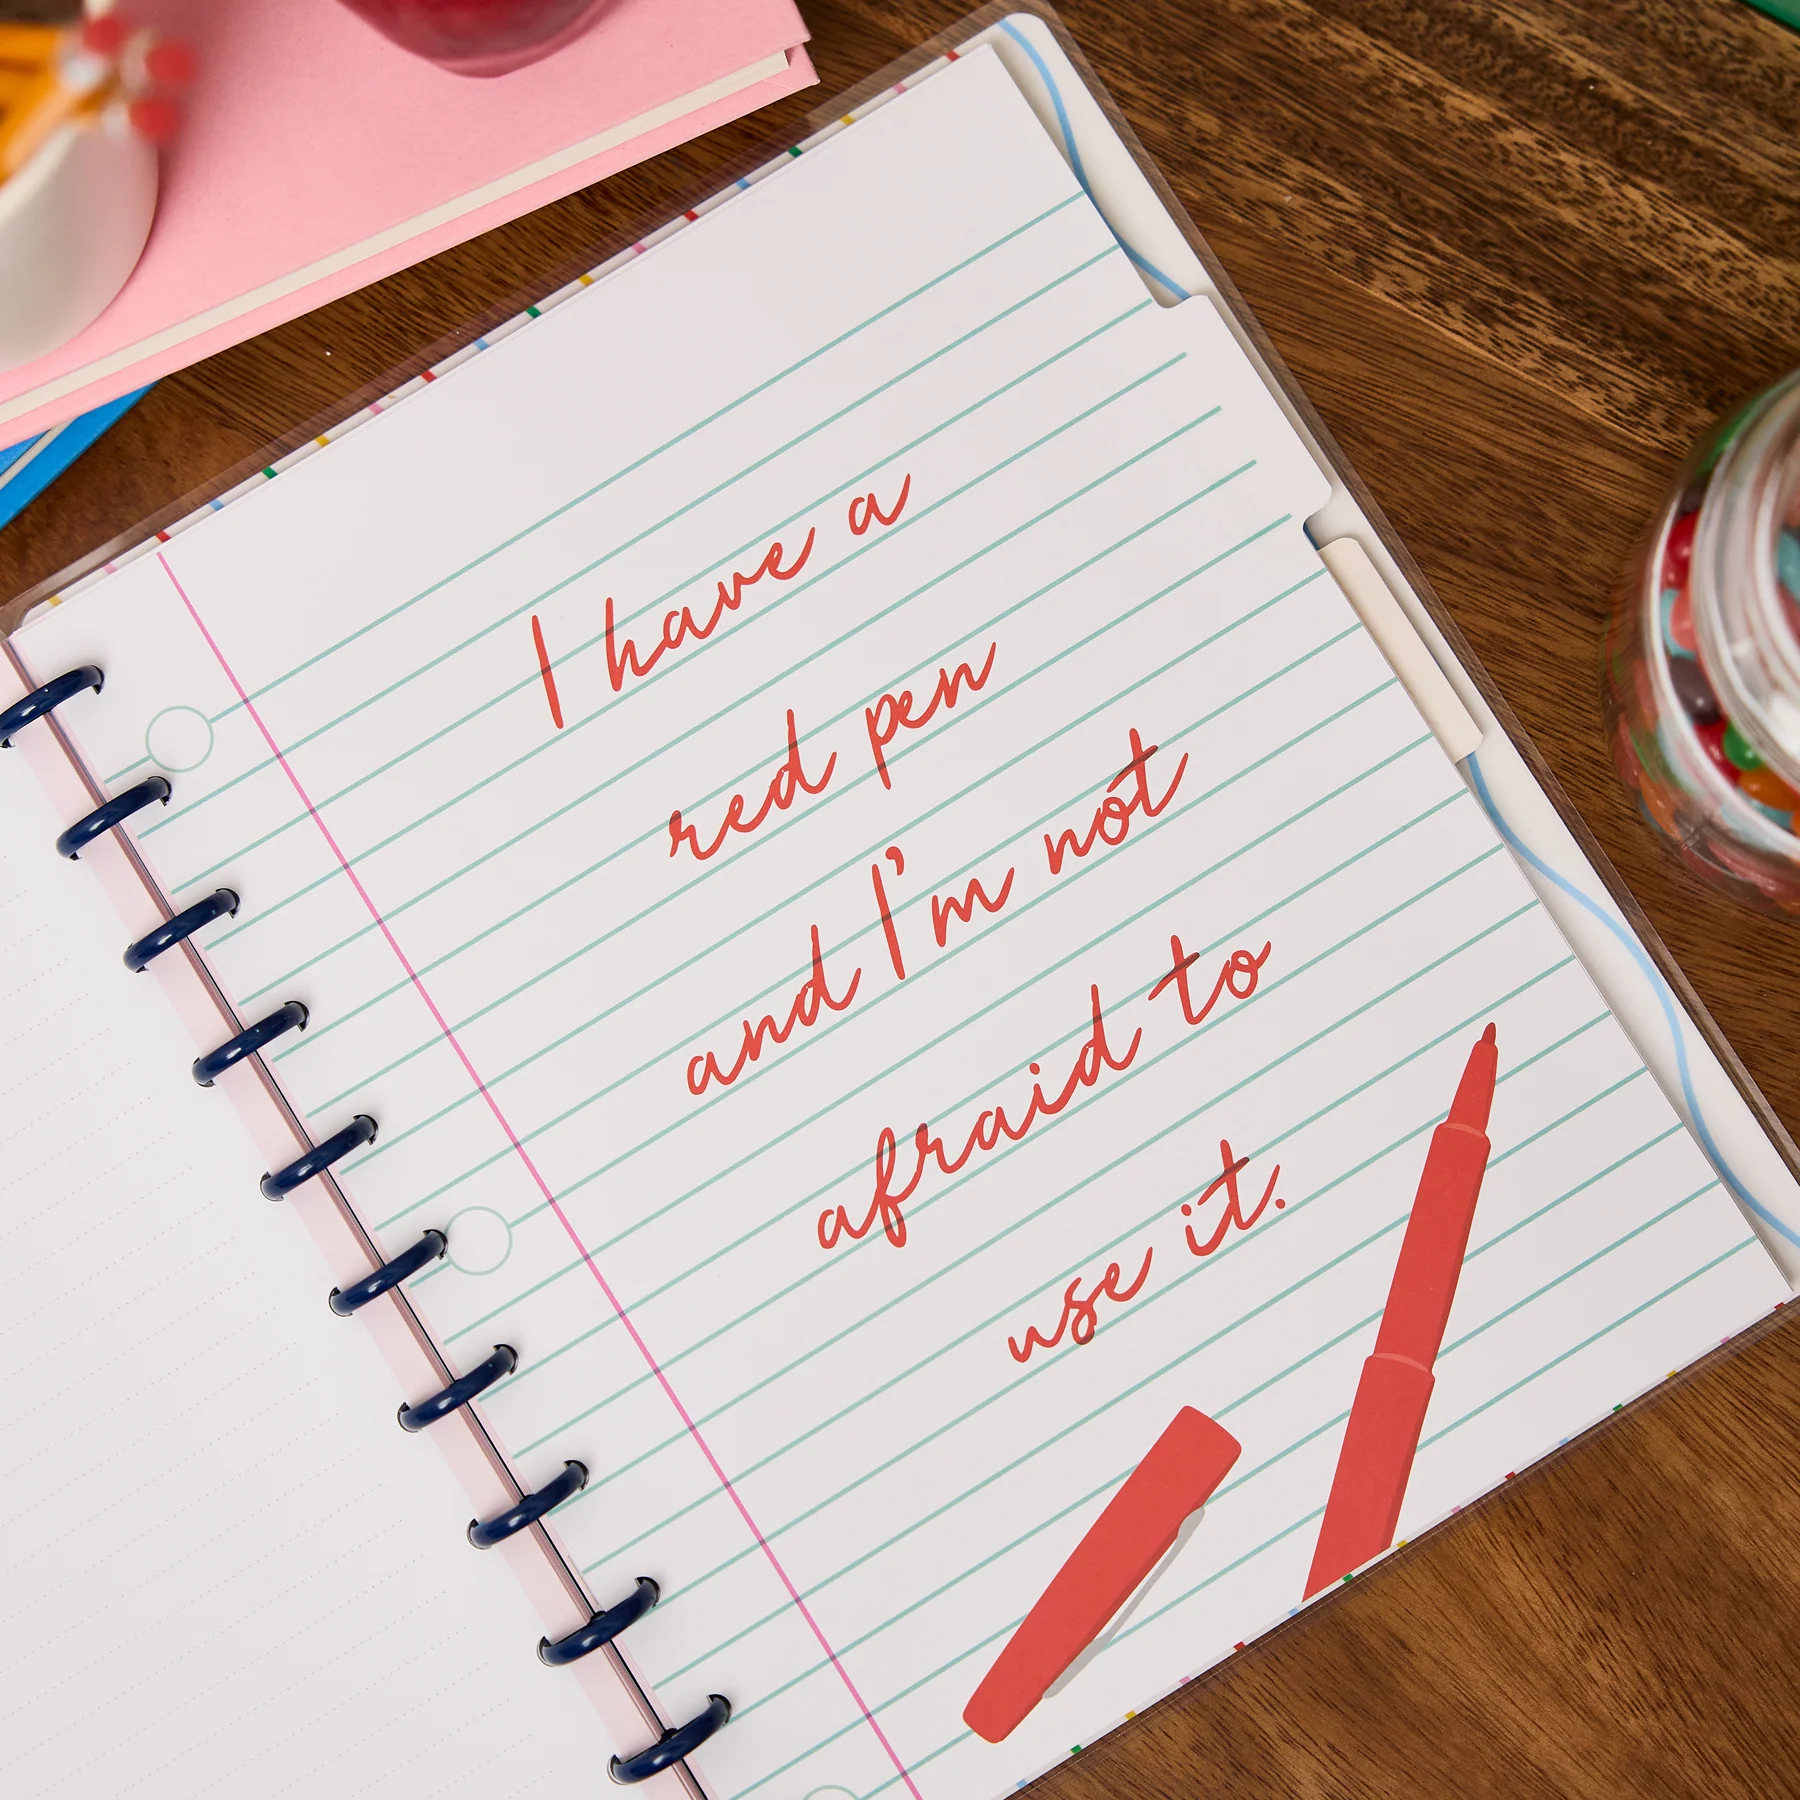 I have a
red pen
and I'm not
afraid to
use it.